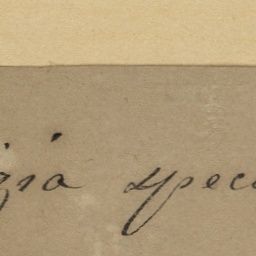 gia spec